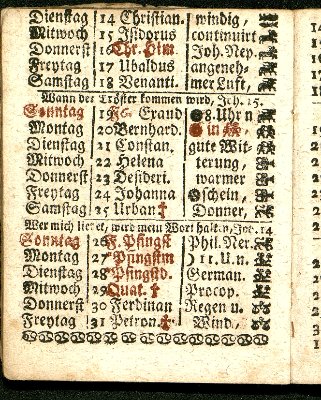 Dienstag 14 Christian. windig,
Mitwoch 15 Isidorus continuirt
Donnerst 16 Chr. Him. Joh. Nep.
Freytag 17 Ubaldus angeneh-
Samstag 18 Venanti. mer Luft,
Wann der Tröster kommen wird, Joh. 15.
Sonntag 19 Eraud 8. Uhr n
Montag 20 Bernhard. in
Dienstag 21 Constan. gute Wit-
Mitwoch 22 Helena terung,
Donnerst 23 Desideri. warmer
Freytag 24 Johanna schein,
Samstag 25 Urban † Donner,
Wer mich liebet, wird mein Wort halten, Joh. 14
Sonntag 26 F. Pfingst Phil. Ner.
Montag 27 Pfingstm ☽ 11. U. n.
Dienstag 28 Pfingstd. German.
Mitwoch 29 Quat. † Procop.
Donnerst 30 Ferdinan Regen u.
Freytag 31 Petron. † Wind,